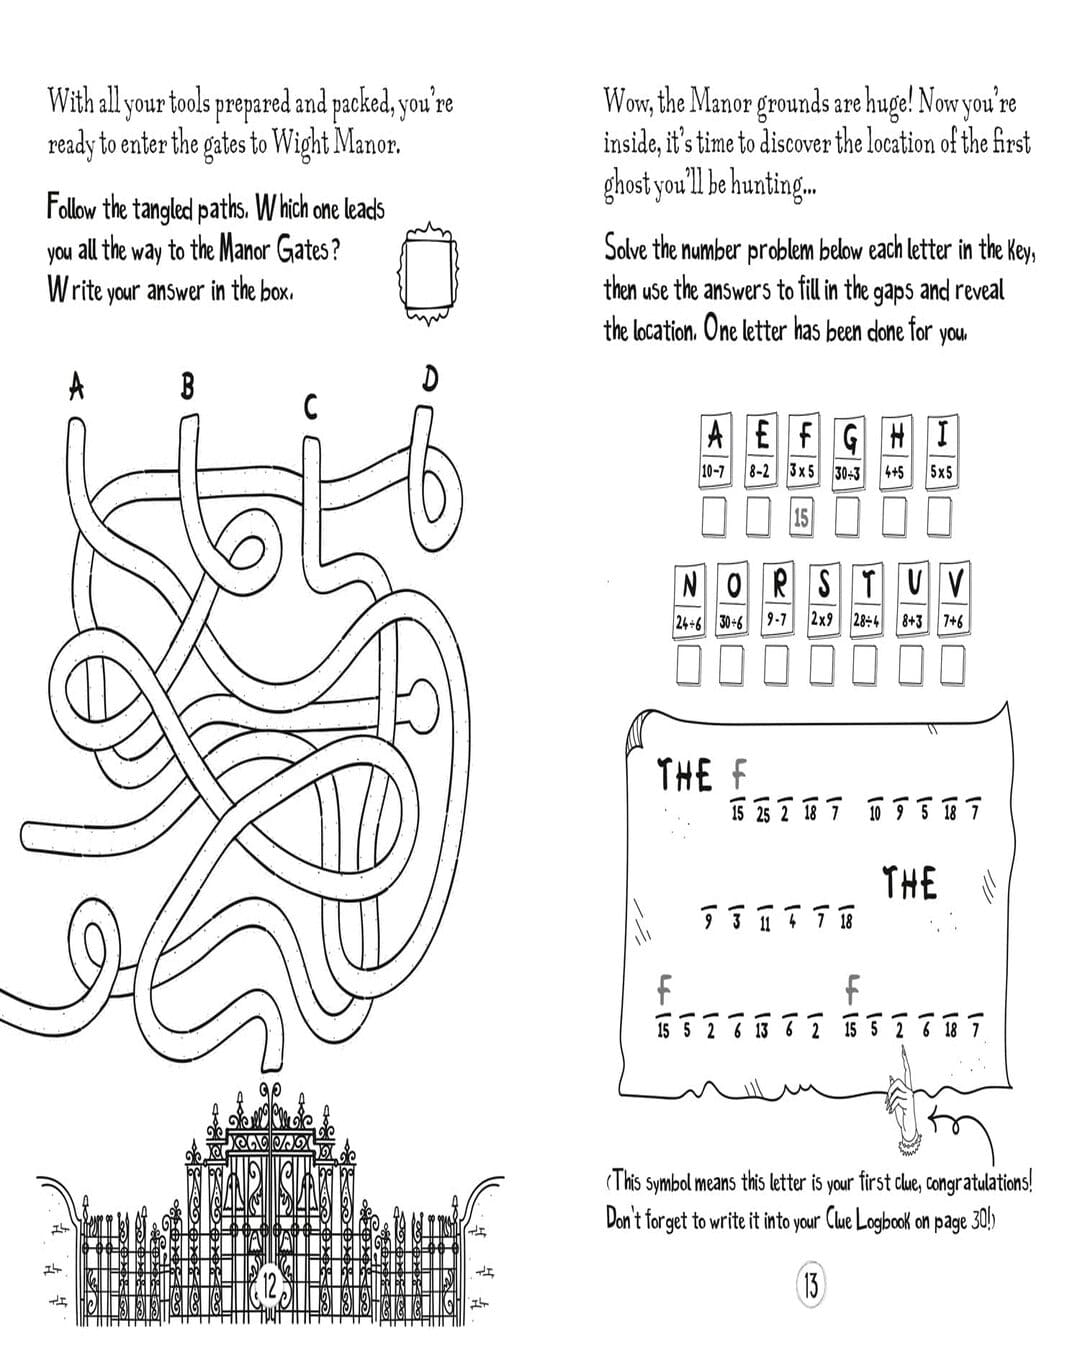 With all your tools prepared and packed, you're
ready to enter the gates to Wight Manor.
Follow the tangled paths. Which one leads
you all the way to the Manor Gates?
Write your answer in the box.
A
B
C
D
12
Wow, the Manor grounds are huge! Now you're
inside, it's time to discover the location of the first
ghost you'll be hunting...
Solve the number problem below each letter in the key,
then use the answers to fill in the gaps and reveal
the location. One letter has been done for you.
A E F G H I
10-7 8-2 3x5 30÷3 4+5 5x5
15
N O R S T U V
24÷6 30÷6 9-7 2x9 28÷4 8+3 7+6
THE F
15 25 2 18 7 10 9 5 18 7
THE
9 3 11 4 7 18
F F
15 5 2 6 13 6 2 15 5 2 6 18 7
(This symbol means this letter is your first clue, congratulations!
Don't forget to write it into your Clue Logbook on page 30!)
13